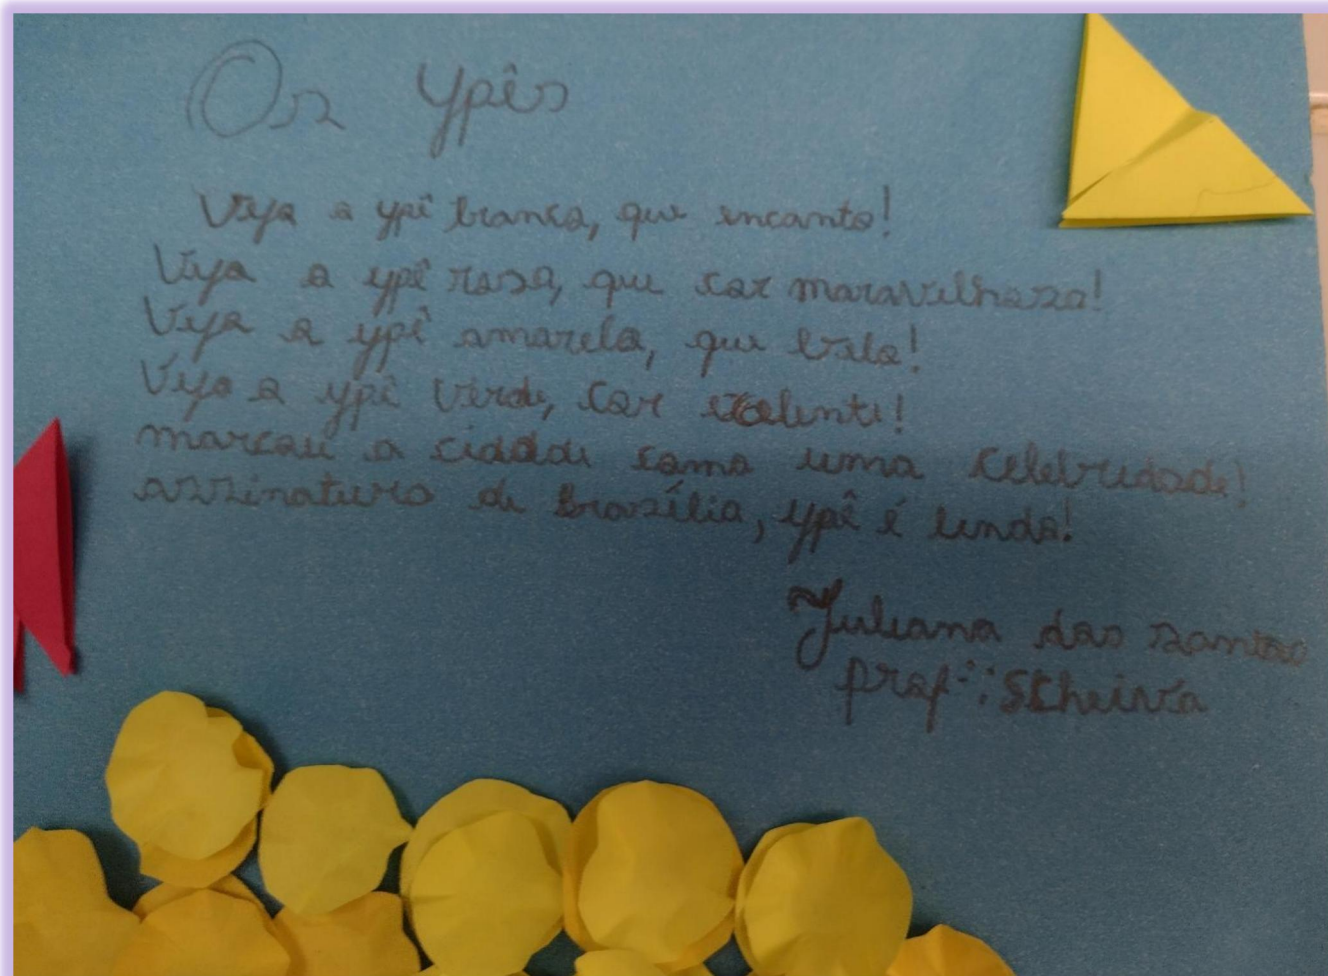 Os ypês
Veja o ypê branco, que encanto!
Veja o ypê rosa, que cor maravilhosa!
Veja o ypê amarelo, que belo!
Veja o ypê verde, cor exelente!
marcou a cidade como uma celebridade!
assinatura de Brasília, ypê é lindo!
Juliana dos santos
profª: Scheiva